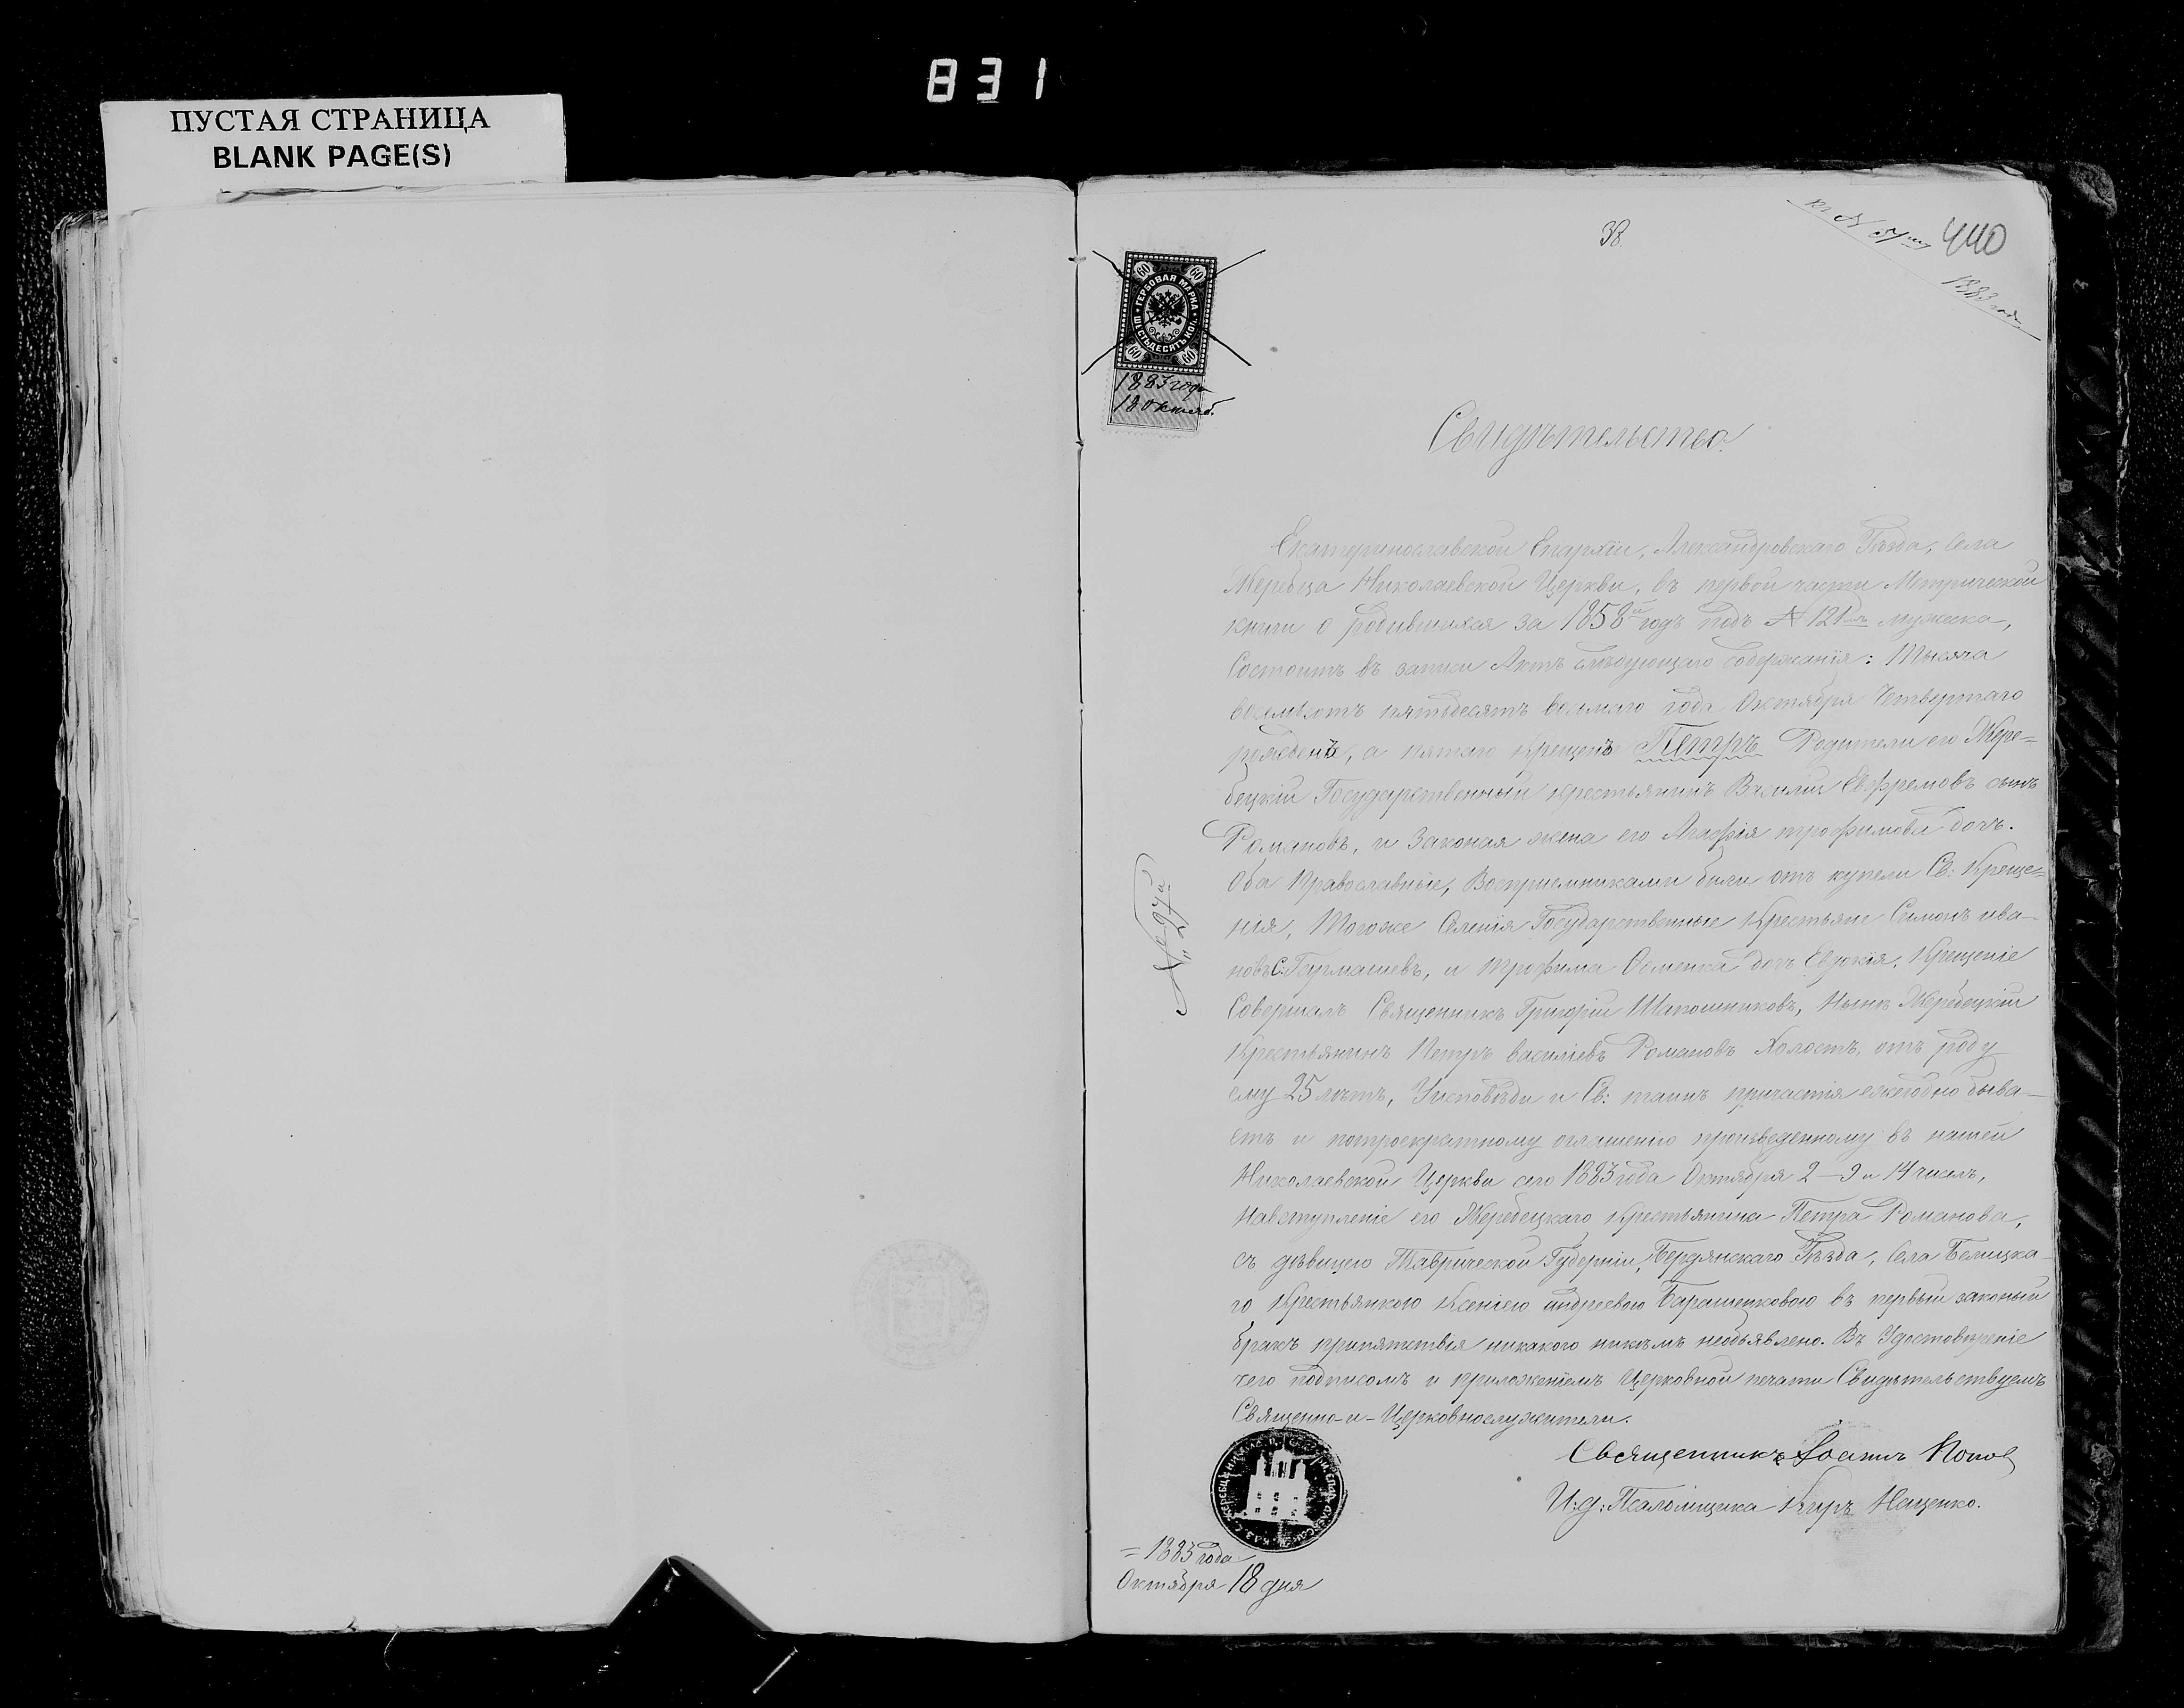 831
ПУСТАЯ СТРАНИЦА
BLANK PAGE(S)
38.
440
1883 год.
60 60
ГЕРБОВАЯ МАРКА
ШЕСТЬДЕСЯТЪ КОП.
60 60
1883 года
18 Октяб.
Свидѣтельство.
Екатеринославской Епархіи, Александровскаго Уѣзда, Села
Жеребца Николаевской Церкви, въ первой части Мтрической
книги о родившихся за 1858й годъ подъ № 121мъ мужеска,
Состоитъ въ записи Актъ слѣдующаго содержанія: Тысяча
восемьсотъ пятьдесятъ восьмаго года Октября Четвертаго
рожденъ, а пятаго крещенъ Петръ Родители его Жере=
бецкій Государственный крестьянинъ Василій Евфремовъ сынъ
Романовъ, и Законая жена его Агафія трофимова дочь.
Оба Православные, Восприемниками были отъ купели Св: Креще=
нія, Тогоже Селенія Государственные Крестьяне Симонъ ива-
новъ С: и Трофима дочь Евдокія. Крещеніе
Совершалъ Священникъ Григорій Шапошниковъ, Нынѣ Жеребецкій
Крестьянинъ Петръ василіевъ Романовъ Холостъ, отъ роду
ему 25 лѣтъ, Уисповѣди и Св: таинъ причастія ежегодно быва-
етъ и потроекратному оглашенію произведенному въ нашей
Николаевской Церкви сего 1883 года Октября 2-9 и 14 чиселъ,
Навступленіе его Жеребецкаго Крестьянина Петра Романова,
съ дѣвицею Таврической Губерніи, Бердянскаго Уѣзда, Села Белицка-
го Крестьянкою Ксеніею андреевою Барашенковою въ первый законый
бракъ припятствія никакого никѣмъ необъявлено. Въ Удостовѣреніе
чего подписомъ и приложеніемъ Церковной печати Свидѣтельствуемъ
Священно-и-Церковнослужители.
Священникъ Іоаннъ Попов
И.д: Псаломщика Киръ Нещенко.
1883 года
Октября 18 дня